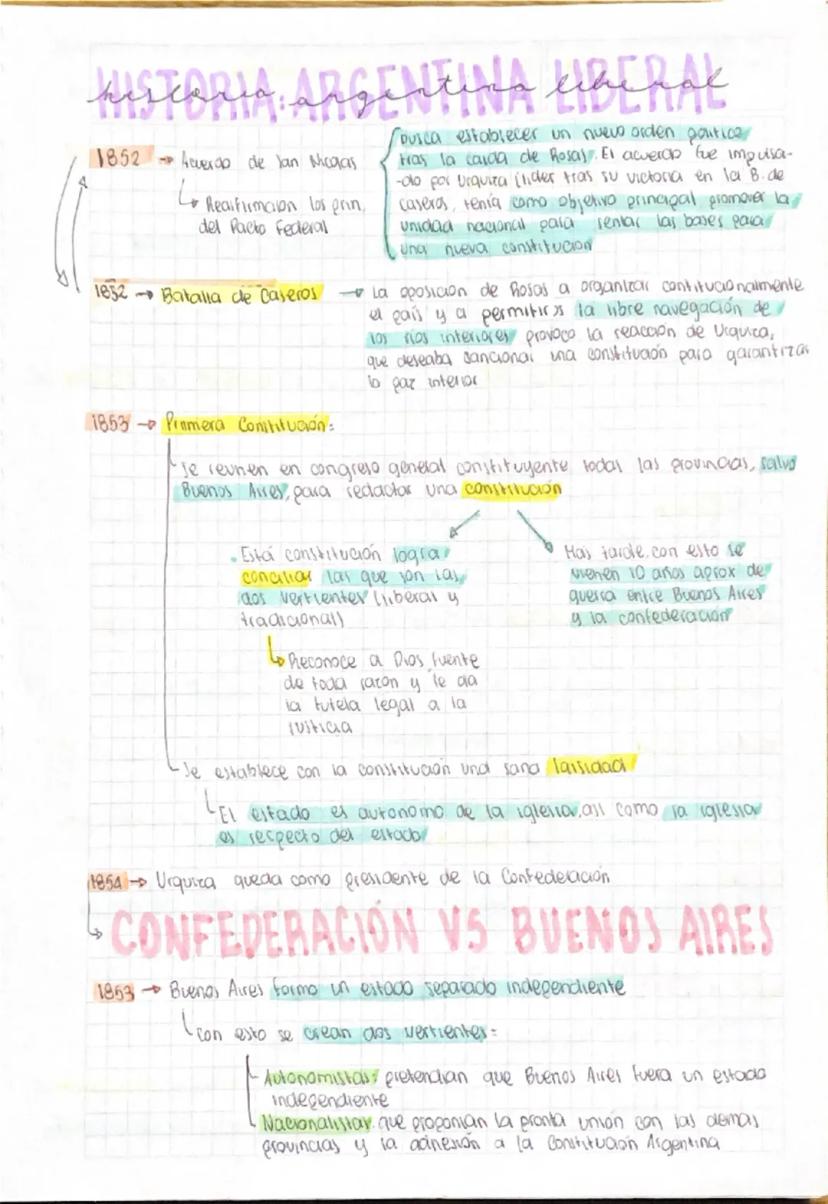 HISTORIA: ARGENTINA LIBERAL
historia argentina liberal
1852 → Acuerdo de San Nicolas
↳ Reafirmacion los prin.
del Pacto Federal
busca establecer un nuevo orden politico
tras la caida de Rosas. El acuerdo fue impulsa-
-do por Urquiza (lider tras su victoria en la B. de
caseros, tenía como objetivo principal promover la
unidad nacional para sentar las bases para
una nueva constitucion
1852 → Batalla de Caseros → La oposicion de Rosas a organizar contitucionalmente
el país y a permitiros la libre navegación de
los rios interiores provoco la reacción de Urquiza,
que deseaba sancionar una constitución para garantizar
la paz interior
1853 → Primera Constitución:
Se reunen en congreso general constituyente todas las provincias, salvo
Buenos Aires, para redactar una constitucion
. Está constitución logra
conciliar las que son las
dos vertientes (liberal y
tradicional)
↳ Reconoce a Dios, fuente
de toda razon y le da
la tutela legal a la
justicia
Mas tarde, con esto se
vienen 10 años aprox de
guerra entre Buenos Aires
y la confederación
Se establece con la constitución una sana laisidad
El estado es autonomo de la iglesia, asi como la iglesia
es respecto del estado
1854 → Urquiza queda como presidente de la Confederación
CONFEDERACIÓN VS BUENOS AIRES
1853 → Buenos Aires formo un estado separado independiente
con esto se crean dos vertientes:
Autonomistas: pretendian que Buenos Aires fuera un estado
independiente
Nacionalistas que proponian la pronta unión con las demas
provincias y la adhesión a la Constitución Argentina